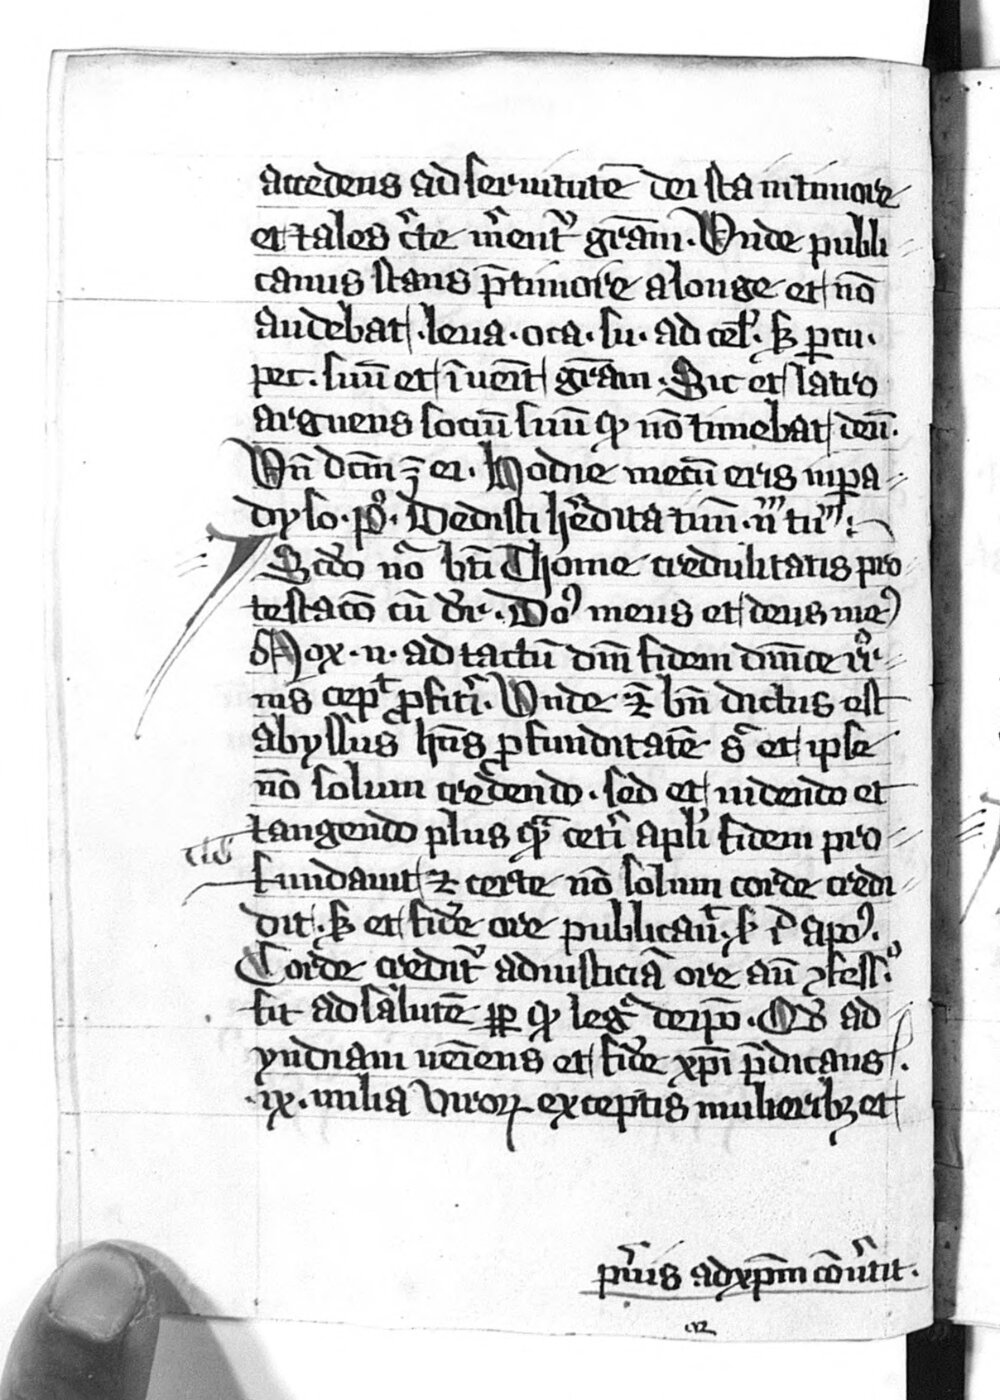 accedens ad seruitutē dei sta in timore
et tales c̄te m̄ent᷑ gr̄am. Vnde publi
canus stans p̄ timore a longe et nō
audebat .leua. oca. su. ad cel᷑. sꝫ ꝑcu.
pec. suū et īuēit gr̄am. Sic et latro
arguens sociū suū ꝙ nō timebat deū.
Vn̄ dc̄m ē ei. hodie mecū eris in para
dyso. p̄o. Dedisti h̄edita tim̄.
Scd̓o nō bt̄i Thome credulitatis pro
testacō cū dr̄. Do᷒ meus et deus me᷒
Mox .n. ad tactū dn̄i fidem dn̄ice
nis cep̄t ꝓfit̄i. Vnde ⁊ bn̄ dictus est
abyssus hn̄s ꝓfunditatē q̄ et ipse
nō solum credendo. sed et uidendo et
tangendo plus qͣ cet̄i apl̄i fidem pro
fundauit ⁊ certe nō solum corde credi
dit. sꝫ et fide ore publicau᷑. apo᷒.
Corde credit᷑ ad iusticiā ore aū ꝯfess᷒o
fit ad salutē ꝙ leg᷑ de ip̄o. Qd̄ ad
yndiam ueniens et fidē xp̄i p̄dicans
.ix. milia viroꝝ exceptis mulieribꝫ et
p̄uis ad xp̄m cōu̓tit.